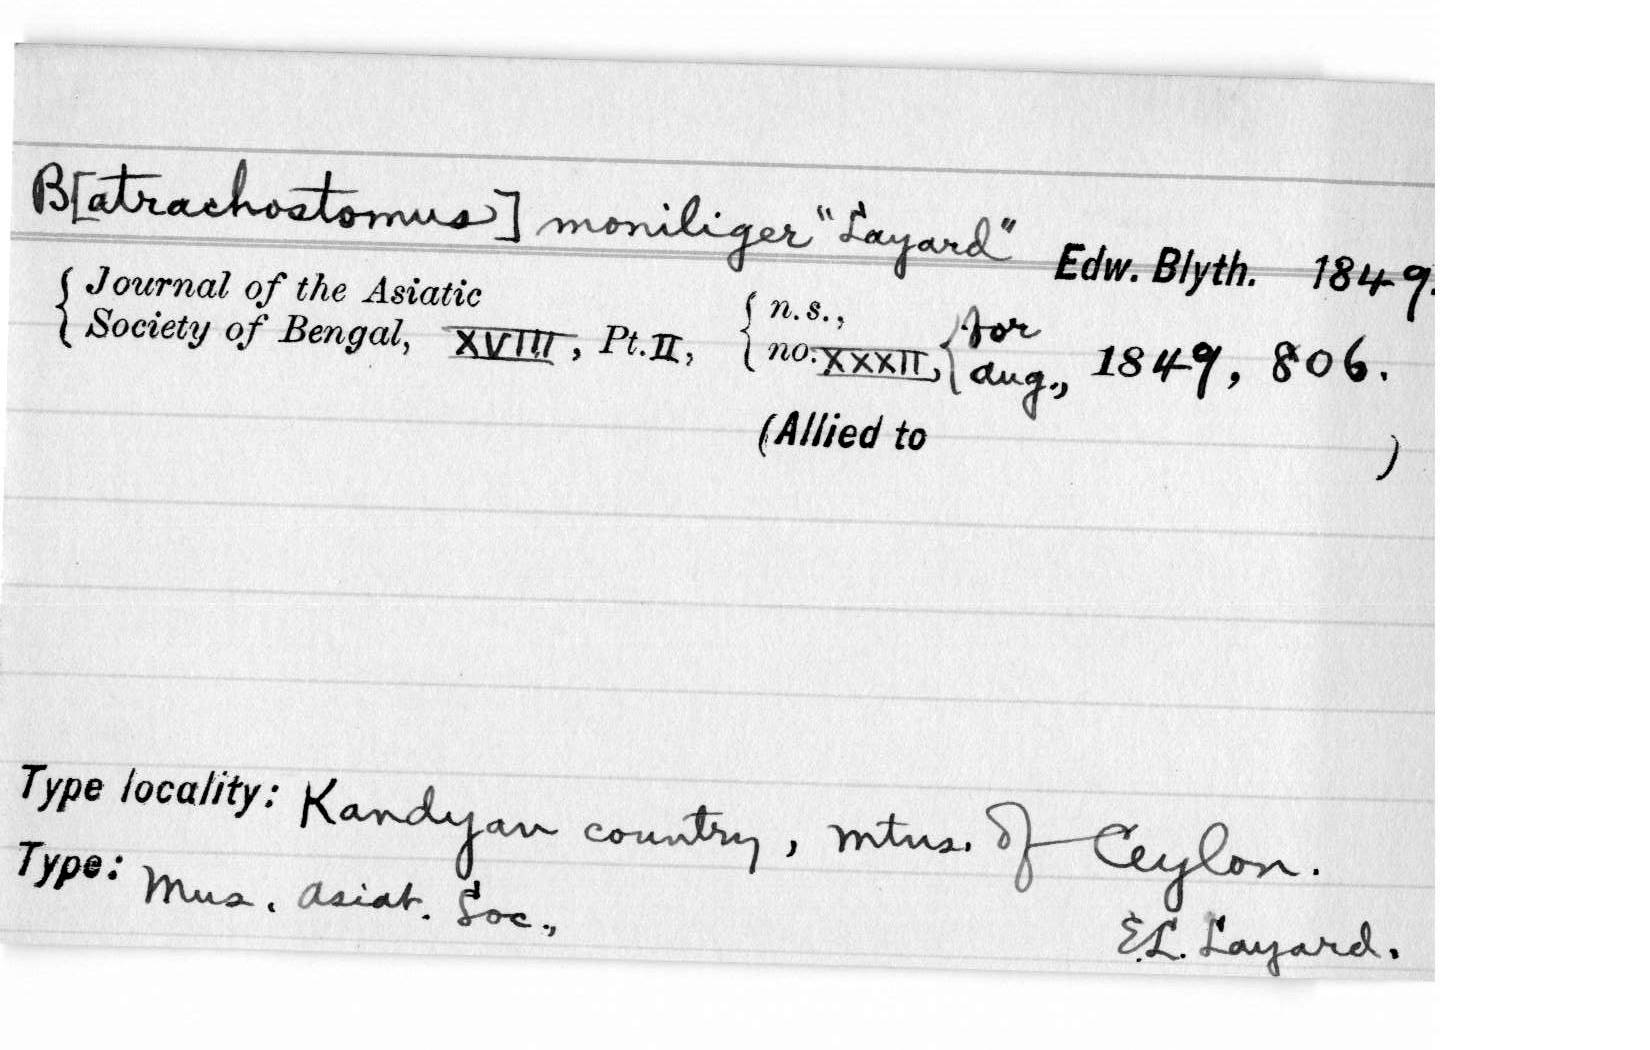 B[atrachostomus] moniliger "Layard" Edw. Blyth. 1849.
{ Journal of the Asiatic Society of Bengal, XVIII, Pt. II, { n.s., no. XXXII, { for Aug., 1849, 806.
(Allied to )
Type locality: Kandyan country, mtns. of Ceylon.
Type: Mus. Asiat. Soc.,
E.L. Layard.